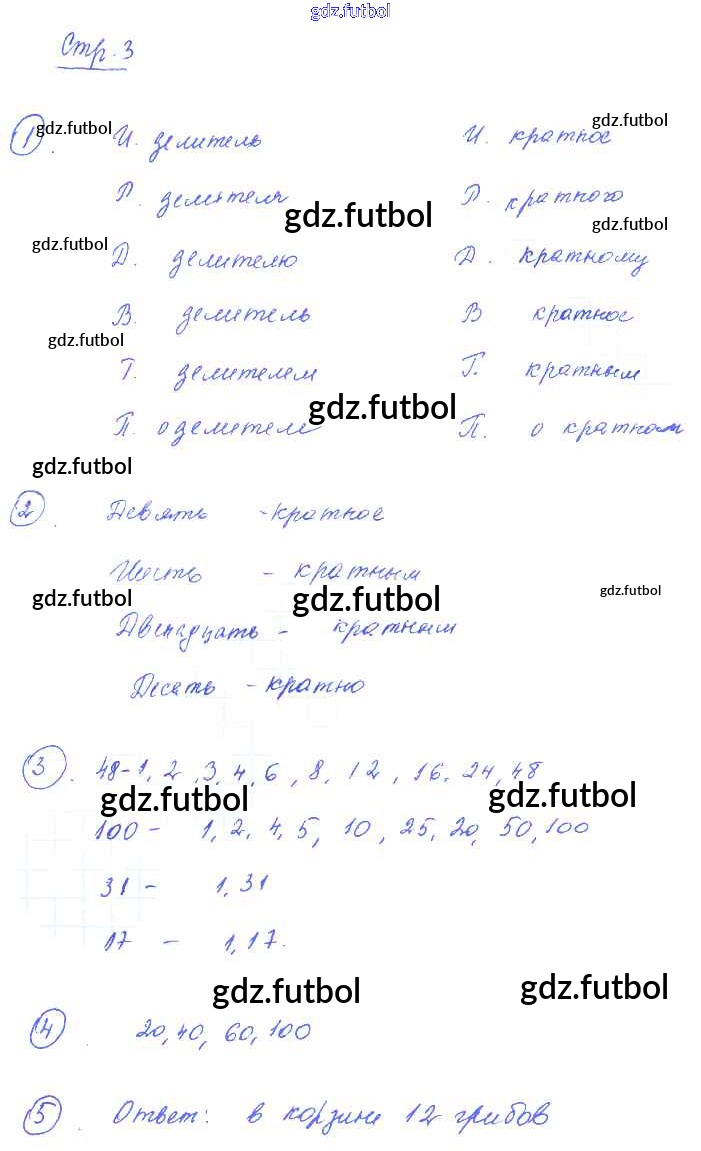 gdz.futbol
Стр. 3
1. gdz.futbol И. делитель И. кратное gdz.futbol
Р. делителя gdz.futbol Р. кратного
gdz.futbol Д. делителю Д. кратному gdz.futbol
В. делитель В кратное
gdz.futbol
Т. делителем Т. кратным
П. о делителе gdz.futbol П. о кратном
gdz.futbol
2. Девять - кратное
Шесть - кратным
gdz.futbol gdz.futbol gdz.futbol
Двенадцать - кратным
Десять - кратно
3. 48 - 1, 2, 3, 4, 6, 8, 12, 16, 24, 48
gdz.futbol gdz.futbol
100 - 1, 2, 4, 5, 10, 25, 20, 50, 100
31 - 1, 31
17 - 1, 17.
gdz.futbol gdz.futbol
4. 20, 40, 60, 100
5. Ответ: в корзине 12 грибов